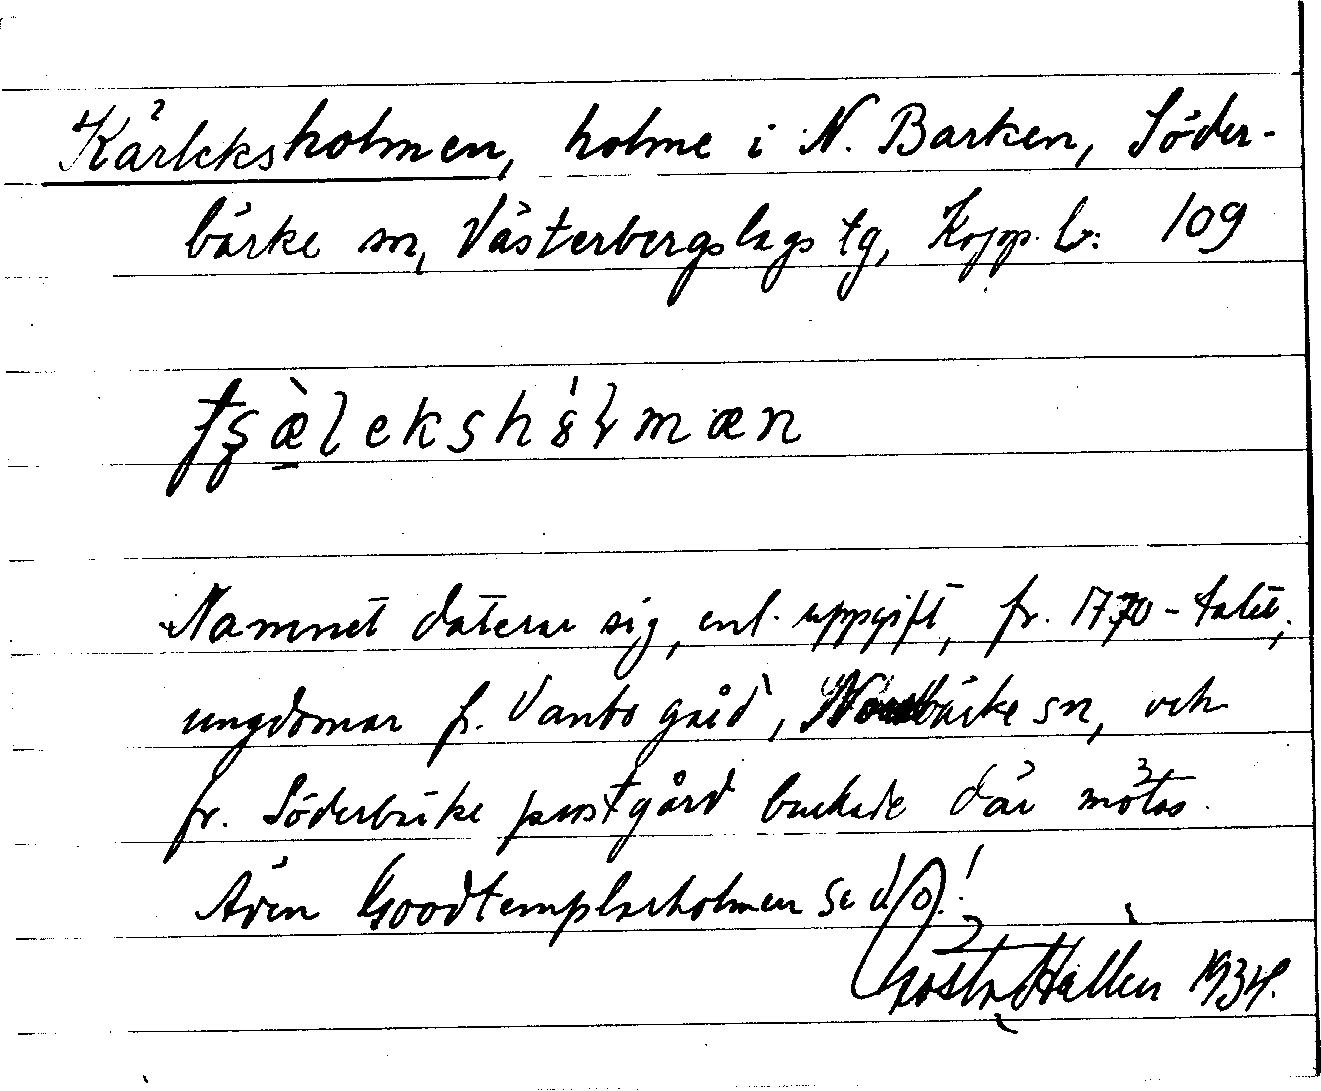 Kärleksholmen, holme i N. Barken, Söder-
bärke sn, Västerbergslags tg, Kopp. l: 109
Namnet daterar sig, enl. uppgift, fr. 1770-talet;
ungdomar fr. Vanbo gård, Norrbärke sn, och
fr. Söderbärke prostgård brukade där mötas.
Även Goodtemplarholmen se d/o!
Gösta Hallén 1934.